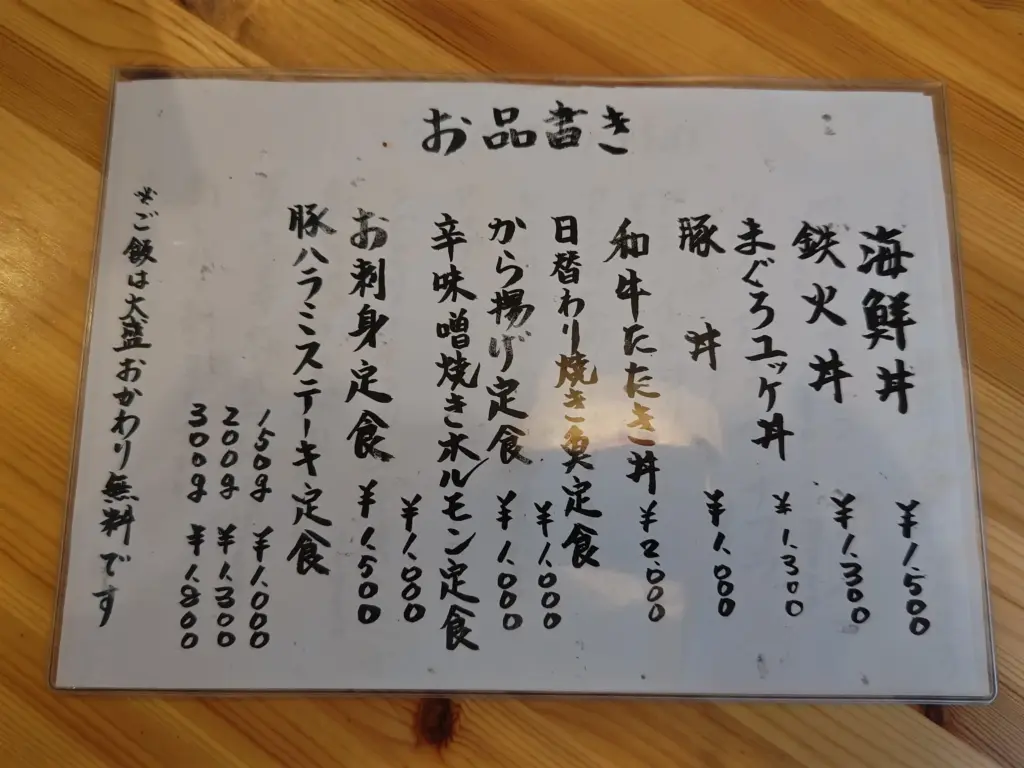 お品書き
海鮮丼 ¥1,500
鉄火丼 ¥1,300
まぐろユッケ丼 ¥1,300
豚丼 ¥1,000
和牛たたき丼 ¥2,000
日替わり焼き魚定食 ¥1,000
から揚げ定食 ¥1,000
辛味噌焼きホルモン定食 ¥1,000
お刺身定食 ¥1,500
豚ハラミステーキ定食
150g ¥1,000
200g ¥1,300
300g ¥1,800
※ご飯は大盛おかわり無料です